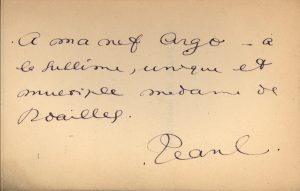 A ma nef Argo – à
la sublime, unique et
multiple madame de
Noailles.
Jean C.